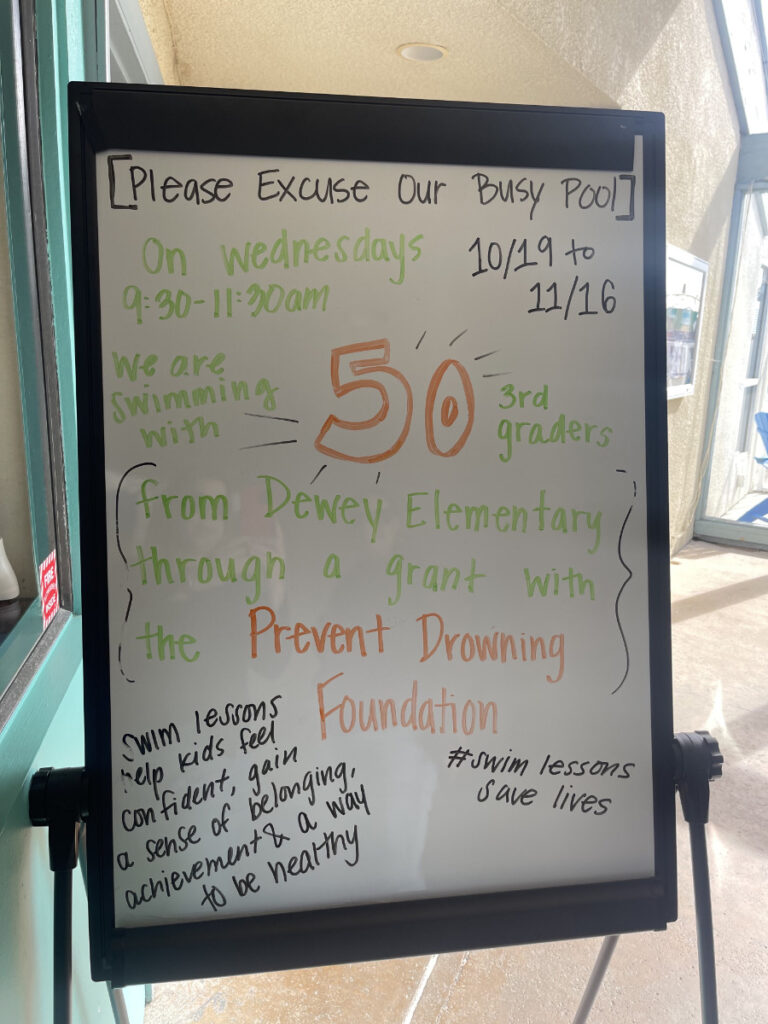 [Please Excuse Our Busy Pool]
On Wednesdays 10/19 to
9:30-11:30am 11/16
We are
swimming
with
50
3rd
graders
from Dewey Elementary
through a grant with
the Prevent Drowning
Foundation
swim lessons
help kids feel
confident, gain
a sense of belonging,
achievement & a way
to be healthy
#swim lessons
save lives
FIRE